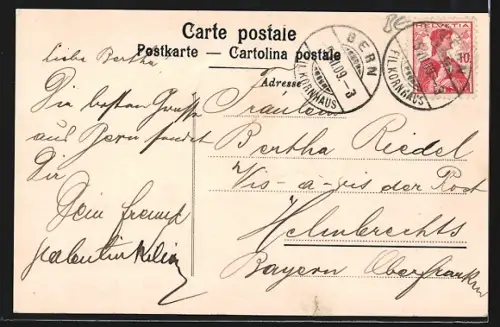 Carte postale
Postkarte — Cartolina postale
Adresse
BERN
FIL. KORNHAUS
09.-3
HELVETIA
10
BERN
FIL. KORNHAUS
Liebe Bertha
Die besten Grüsse
aus Bern sendet
Dir
Dein Freund
Valentin Kilian
Fräulein
Bertha Riedel
Vis-à-vis der Post
Helmbrechts
Bayern Oberfranken